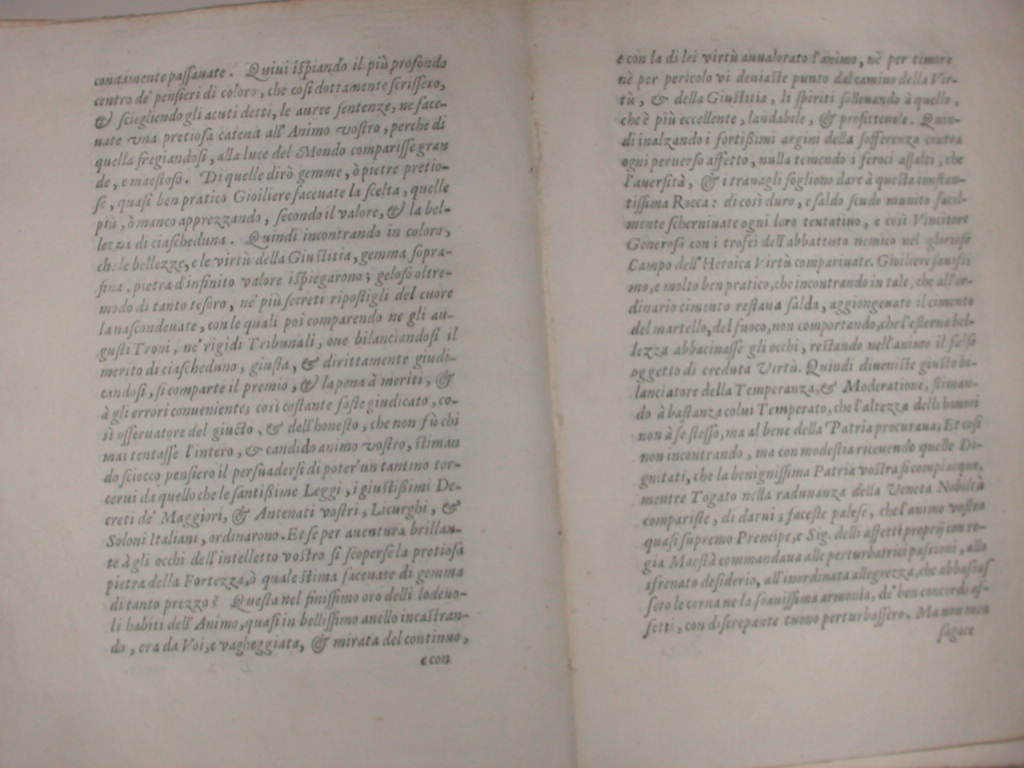 condamente passauate. Quiui ispiando il più profondo
centro de' pensieri di coloro, che così dottamente scrissero,
& sciegliendo gli acuti detti, le auree sentenze, ne face-
uate vna pretiosa catena all'Animo vostro, perche di
quella fregiandosi, alla luce del Mondo comparisse gran
de, e maestoso. Di quelle dirò gemme, ò pietre pretio-
se, quasi ben pratico Gioiliere faceuate la scelta, quelle
più, ò manco apprezzando, secondo il valore, & la bel-
lezza di ciascheduna. Quindi incontrando in coloro,
che le bellezze, e le virtù della Giustitia, gemma sopra-
fina, pietra d'infinito valore ispiegarono; geloso oltre-
modo di tanto tesoro, ne' più secreti ripostigli del cuore
la nascondeuate, con le quali poi comparendo ne gli au-
gusti Troni, ne' rigidi Tribunali, oue bilanciandosi il
merito di ciascheduno, giusta, & dirittamente giudi-
candosi, si comparte il premio, & la pena à meriti, &
à gli errori conueniente; così costante foste giudicato, co-
sì osseruatore del giusto, & dell'honesto, che non fù chi
mai tentasse l'intero, & candido animo vostro, stiman
do sciocco pensiero il persuadersi di poter' vn tantino tor-
cerui da quello che le santissime Leggi, i giustissimi De-
creti de' Maggiori, & Antenati vostri, Licurghi, &
Soloni Italiani, ordinarono. Et se per auentura brillan-
te à gli occhi dell'intelletto vostro si scoperse la pretiosa
pietra della Fortezza, ò quale stima faceuate di gemma
di tanto prezzo? Questa nel finissimo oro delli lodeuo-
li habiti dell'Animo, quasi in bellissimo anello incastran-
do, era da Voi, e vagheggiata, & mirata del continuo,
e con
e con la di lei virtù aualorato l'animo, nè per timore
nè per pericolo vi deuiaste punto dal camino della Vir-
tù, & della Giustitia, li spiriti solleuando à quello,
che è più eccellente, laudabile, & profitteuole. Quin-
di inalzando i fortissimi argini della sofferenza contra
ogni peruerso affetto, nulla temendo i feroci assalti, che
l'auersità, & i trauagli sogliono dare à questa constan-
tissima Rocca: di così duro, e saldo scudo munito facil-
mente scherniuate ogni loro tentatiuo, e così Vincitore
Generoso con i trofei dell'abbattuto nemico nel glorioso
Campo dell'Heroica Virtù compariuate. Gioiliere sauissi
mo, e molto ben pratico, che incontrando in tale, che all'or-
dinario cimento restaua salda, aggiongeuate il cimento
del martello, del fuoco, non comportando, che l'esterne bel-
lezza abbacinasse gli occhi, restando nell'animo il falso
oggetto di creduta Virtù. Quindi diueniste giusto bi-
lanciatore della Temperanza, & Moderatione, stiman-
do à bastanza colui Temperato, che l'altezza delli honori
non à se stesso, ma al bene della Patria procuraua; Et così
non incontrando, ma con modestia riceuendo quelle Di-
gnitati, che la benignissima Patria vostra si compiacque,
mentre Togato nella radunanza della Veneta Nobiltà
compariste, di darui; faceste palese, che l'animo vostro
quasi supremo Prencipe, e Sig. delli affetti proprij con re-
gia Maestà commandaua alle perturbatrici passioni, allo
sfrenato desiderio, all'inordinata allegrezza, che abbassas
sero le corna ne la soauissima armonia, de' ben concordi af-
fetti, con discrepante tuono perturbassero. Ma non men
sagace